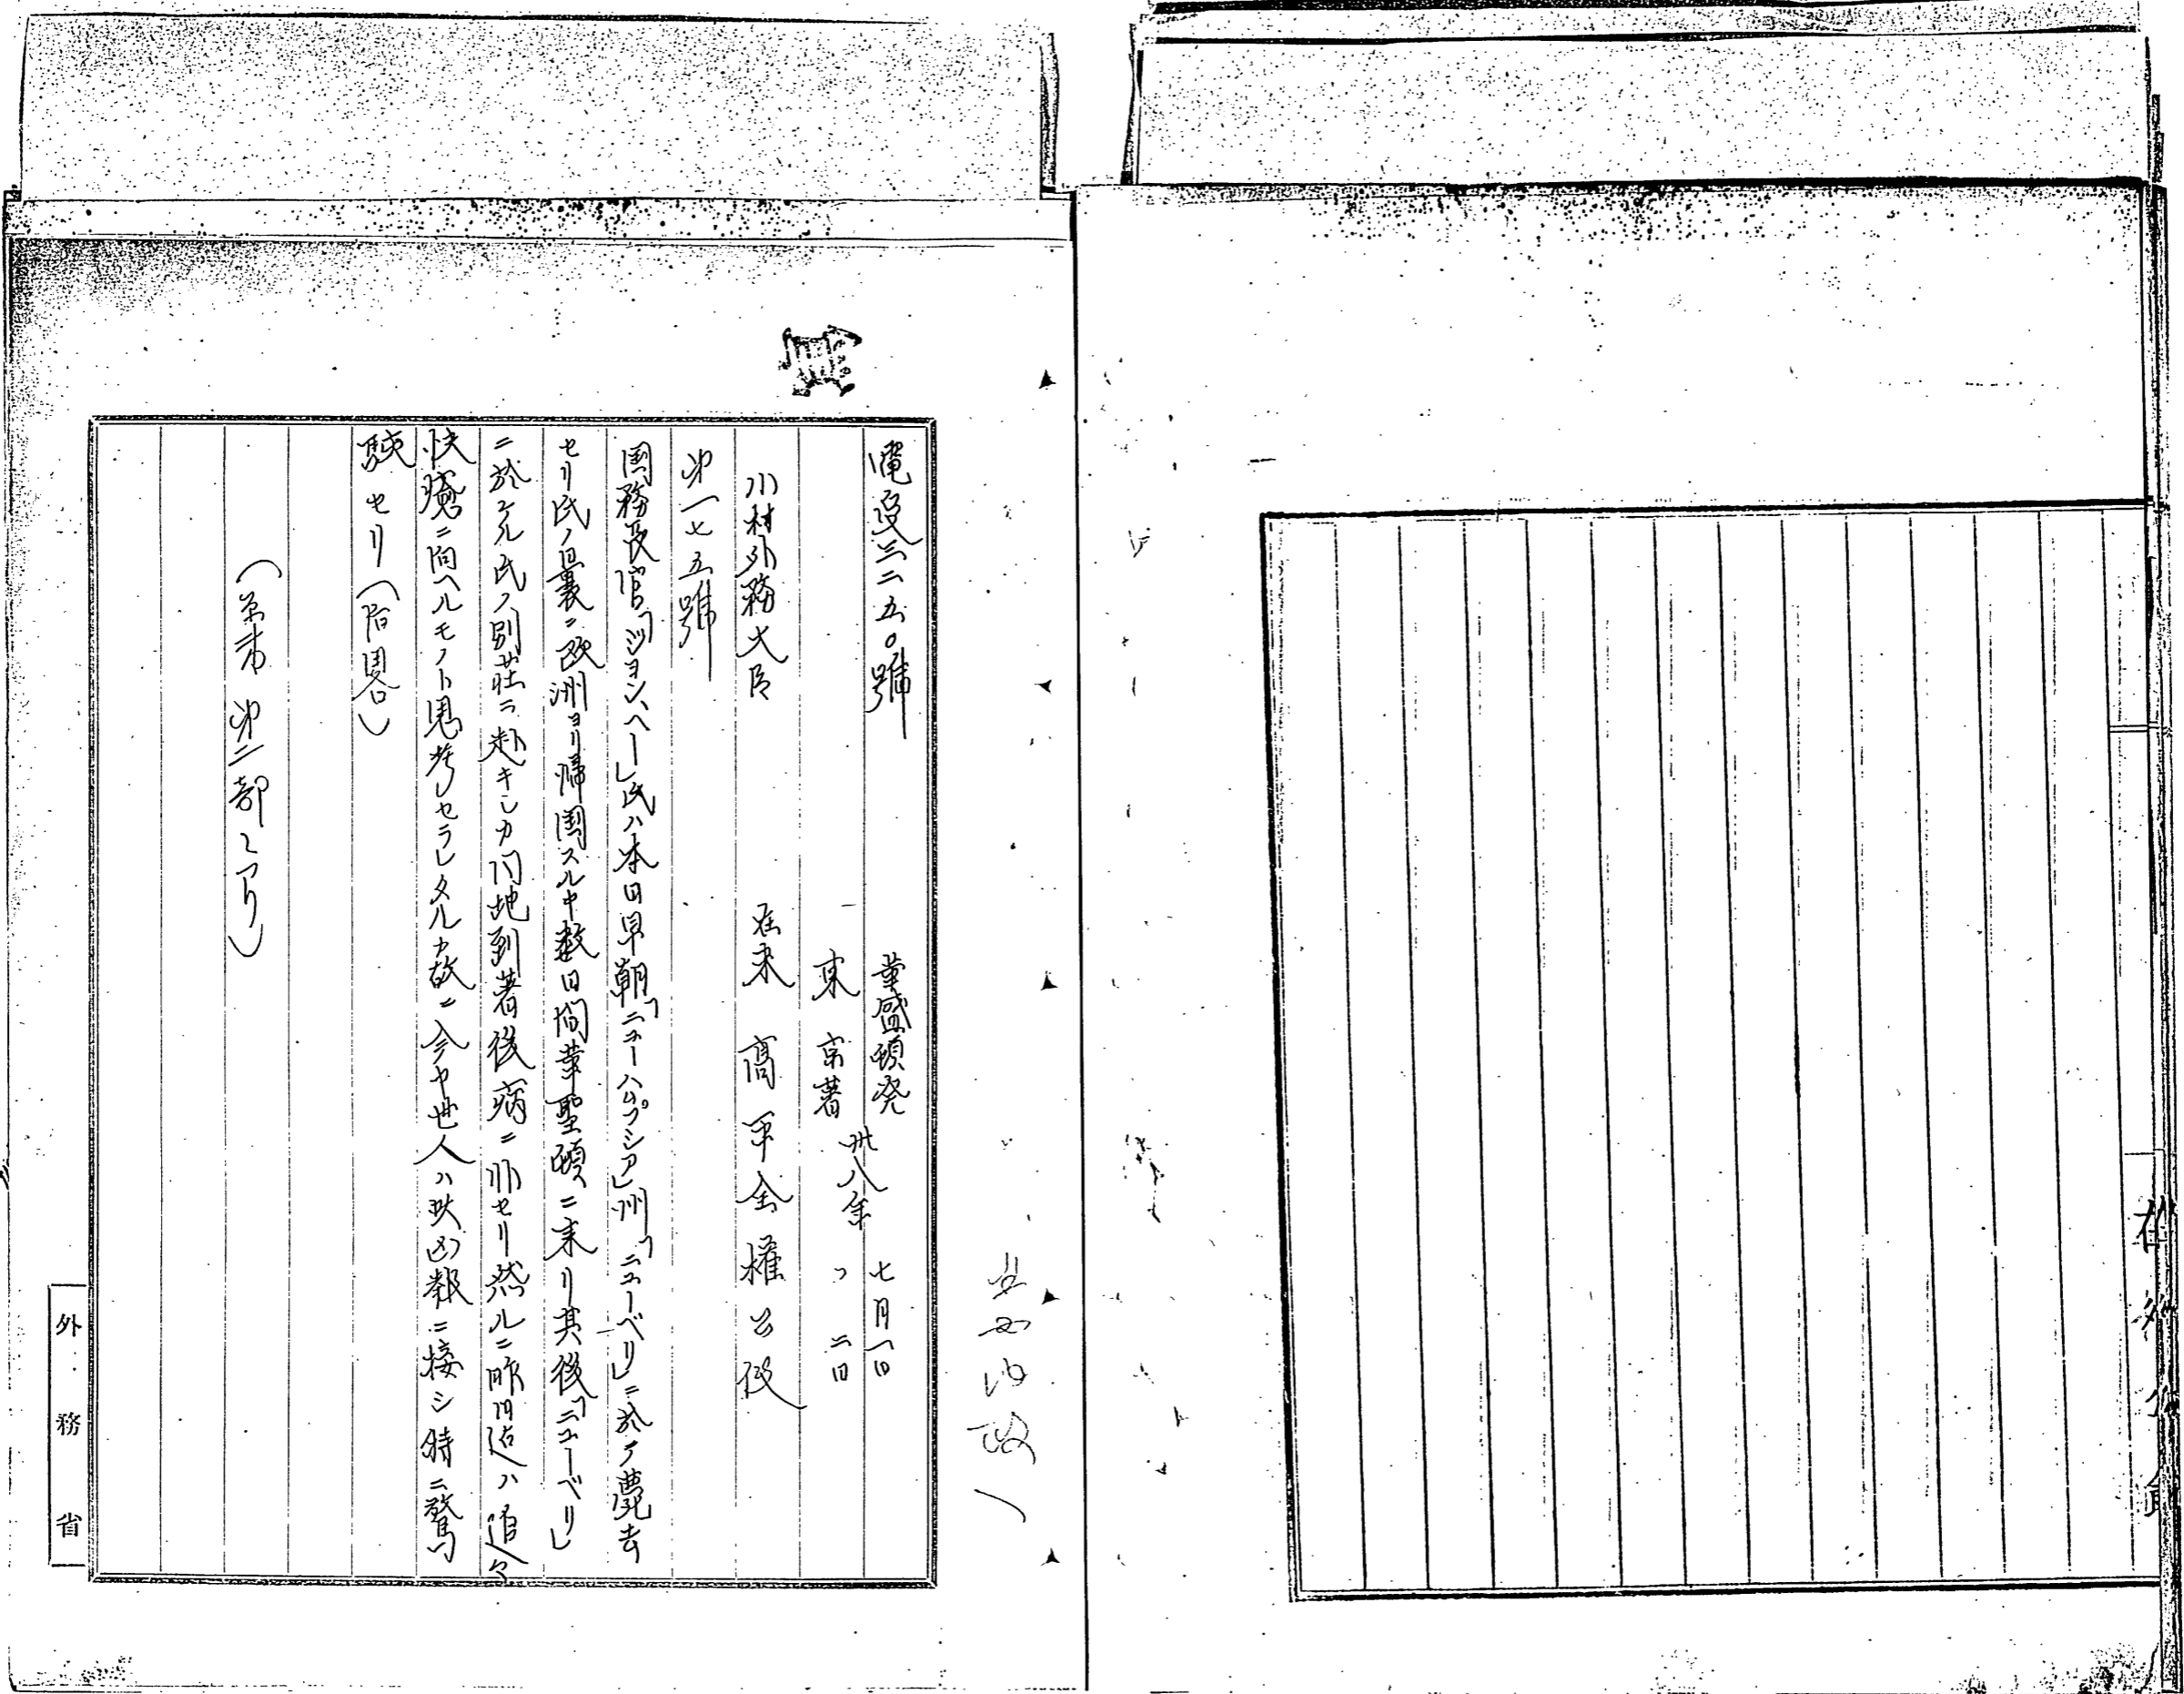 電受三二五〇號
華盛頓発 卅八年 七月一日
東京著 〃 二日
小村外務大臣
在米 高平全権公使
第一七五號
国務長官「ジョン、ヘー」氏ハ本日早朝「ニューハムプシアー」州「ニューベリー」ニ於テ薨去
セリ氏ノ曩ニ欧洲ヨリ帰国スルヤ数日間華聖頓ニ来リ其後「ニューベリー」
ニ於ケル氏ノ別荘ニ赴キシカ同地到著後病ニ罹セリ然ルニ昨日迄ハ追々
快癒ニ向ヘルモノト思考セラレタルカ故ニ今ヤ世人ハ此凶報ニ接シ特ニ驚
駭セリ（後略）
外務省